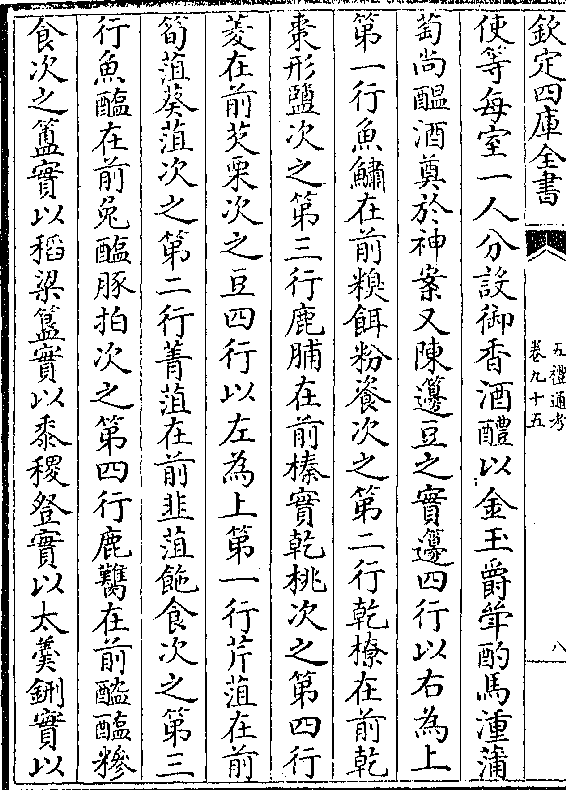 欽定四庫全書
五禮通考
卷九十五
八
使等每室一人分設御香酒醴以金玉爵斝酌馬湩蒲
萄尚醖酒奠於神案又陳籩豆之實籩四行以右為上
第一行魚鱐在前糗餌粉餈次之第二行乾䕩在前乾
棗形鹽次之第三行鹿脯在前榛實乾桃次之第四行
菱在前芡栗次之豆四行以左為上第一行芹菹在前
筍菹葵菹次之第二行菁菹在前韭菹飽食次之第三
行魚醢在前兔醢豚拍次之第四行鹿臡在前醓醢糝
食次之簠實以稻粱簋實以黍稷登實以太羹鉶實以